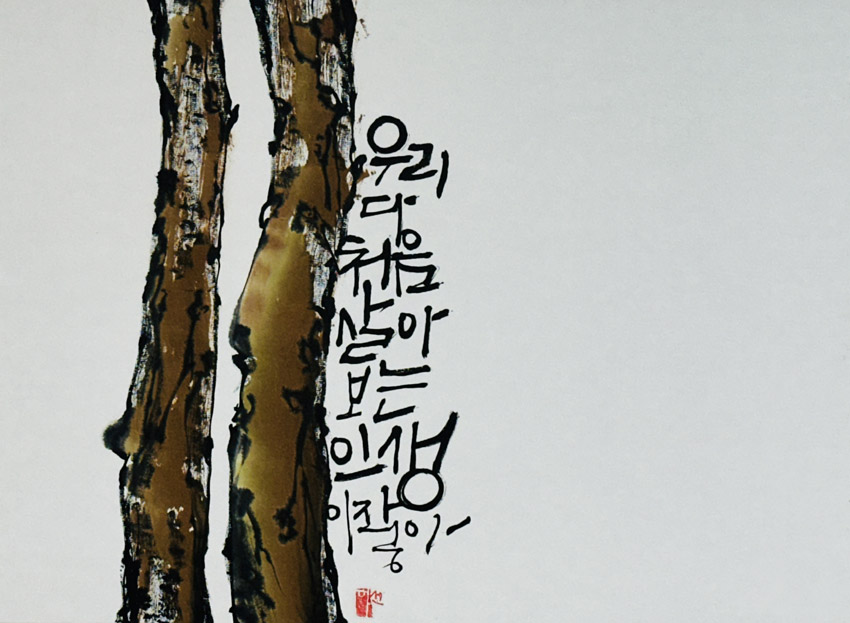 우리
다
처음
살아
보는
인생
이잖아